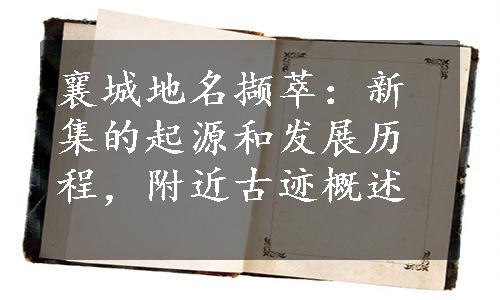 襄城地名撷萃：新
集的起源和发展历
程，附近古迹概述